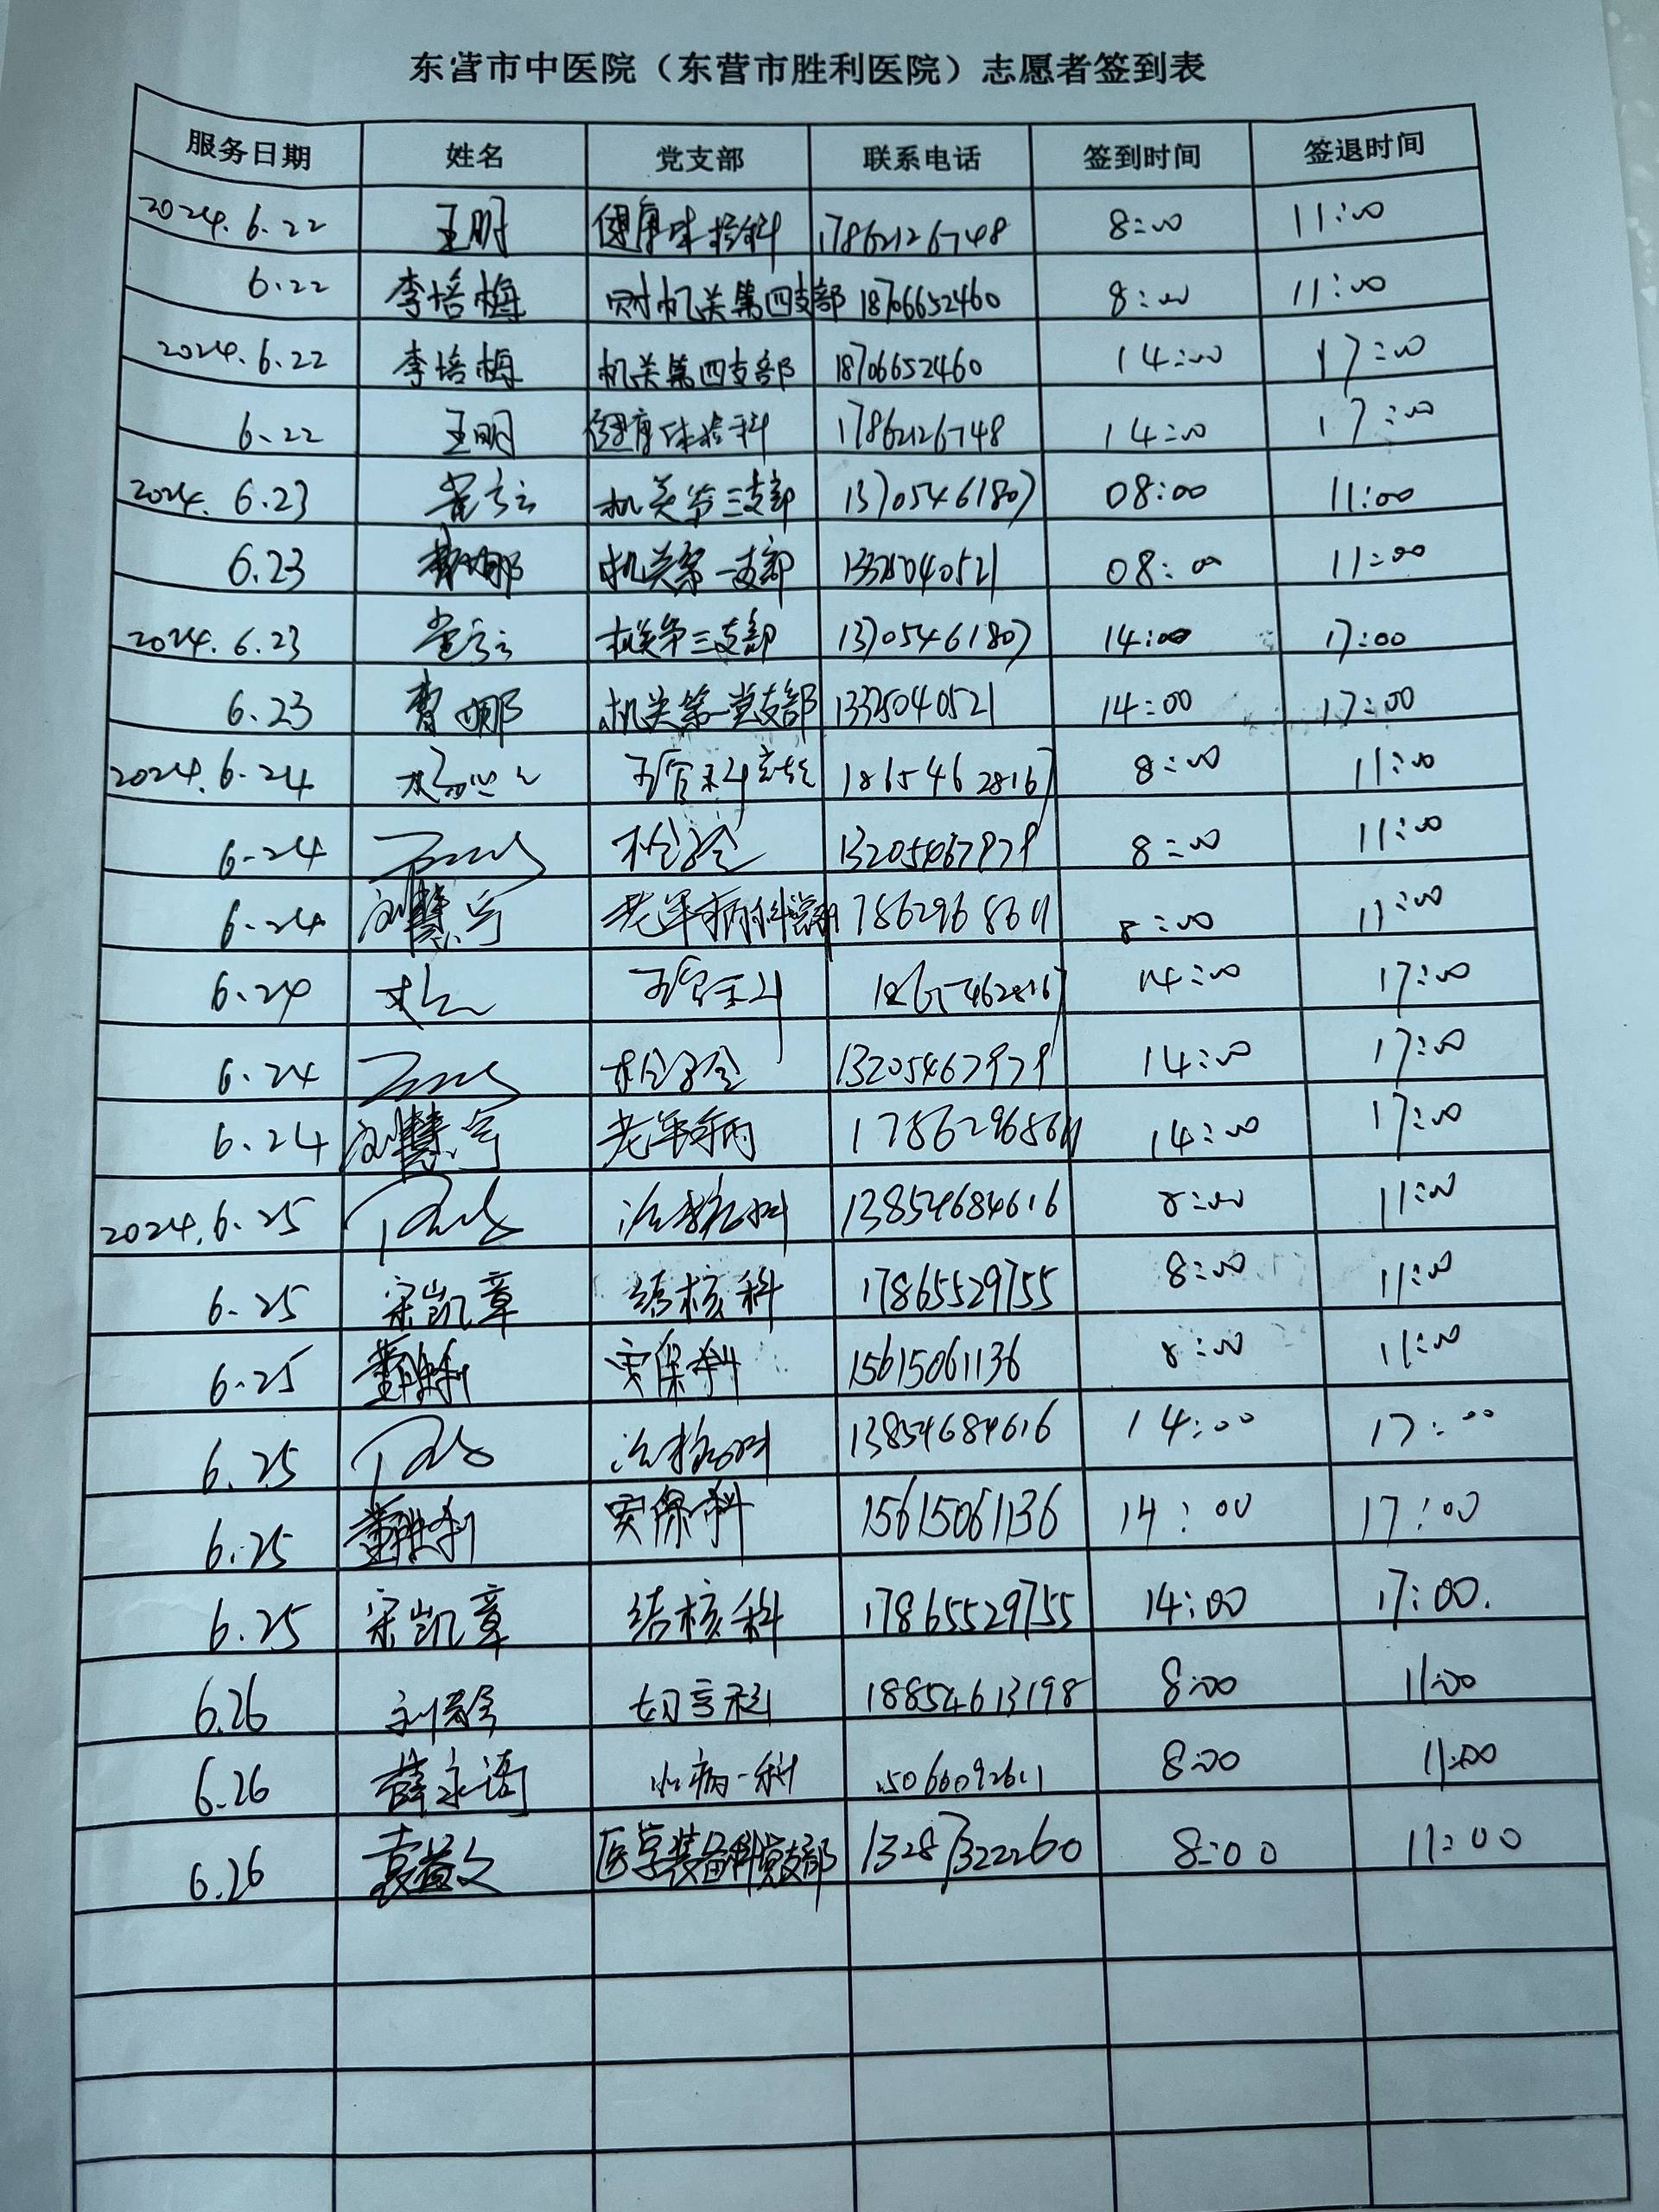 东营市中医院（东营市胜利医院）志愿者签到表
服务日期 姓名 党支部 联系电话 签到时间 签退时间
2024.6.22 王明 健康体检科 17862126748 8:00 11:00
6.22 李培梅 机关第四支部 18706652460 8:00 11:00
2024.6.22 李培梅 机关第四支部 18706652460 14:00 17:00
6.22 王明 健康体检科 17862126748 14:00 17:00
2024.6.23 机关第三支部 13705461807 08:00 11:00
6.23 机关第一支部 13325040521 08:00 11:00
2024.6.23 机关第三支部 13705461807 14:00 17:00
6.23 曹娜 机关第一党支部 13325040521 14:00 17:00
2024.6.24 五官科 18654628167 8:00 11:00
6.24 检验 13205467979 8:00 11:00
6.24 刘慧宇 老年病科 17862968611 8:00 11:00
6.24 五官科 18654628167 14:00 17:00
6.24 检验 13205467979 14:00 17:00
6.24 刘慧宇 老年病 17862968611 14:00 17:00
2024.6.25 13854684616 8:00 11:00
6.25 宋凯章 结核科 17865529755 8:00 11:00
6.25 董胜利 安保科 15615061136 8:00 11:00
6.25 13854684616 14:00 17:00
6.25 董胜利 安保科 15615061136 14:00 17:00
6.25 宋凯章 结核科 17865529755 14:00 17:00.
6.26 18854613198 8:00 11:00
6.26 薛永涛 心病一科 15066092611 8:00 11:00
6.26 袁益文 医学装备科党支部 13287322260 8:00 11:00